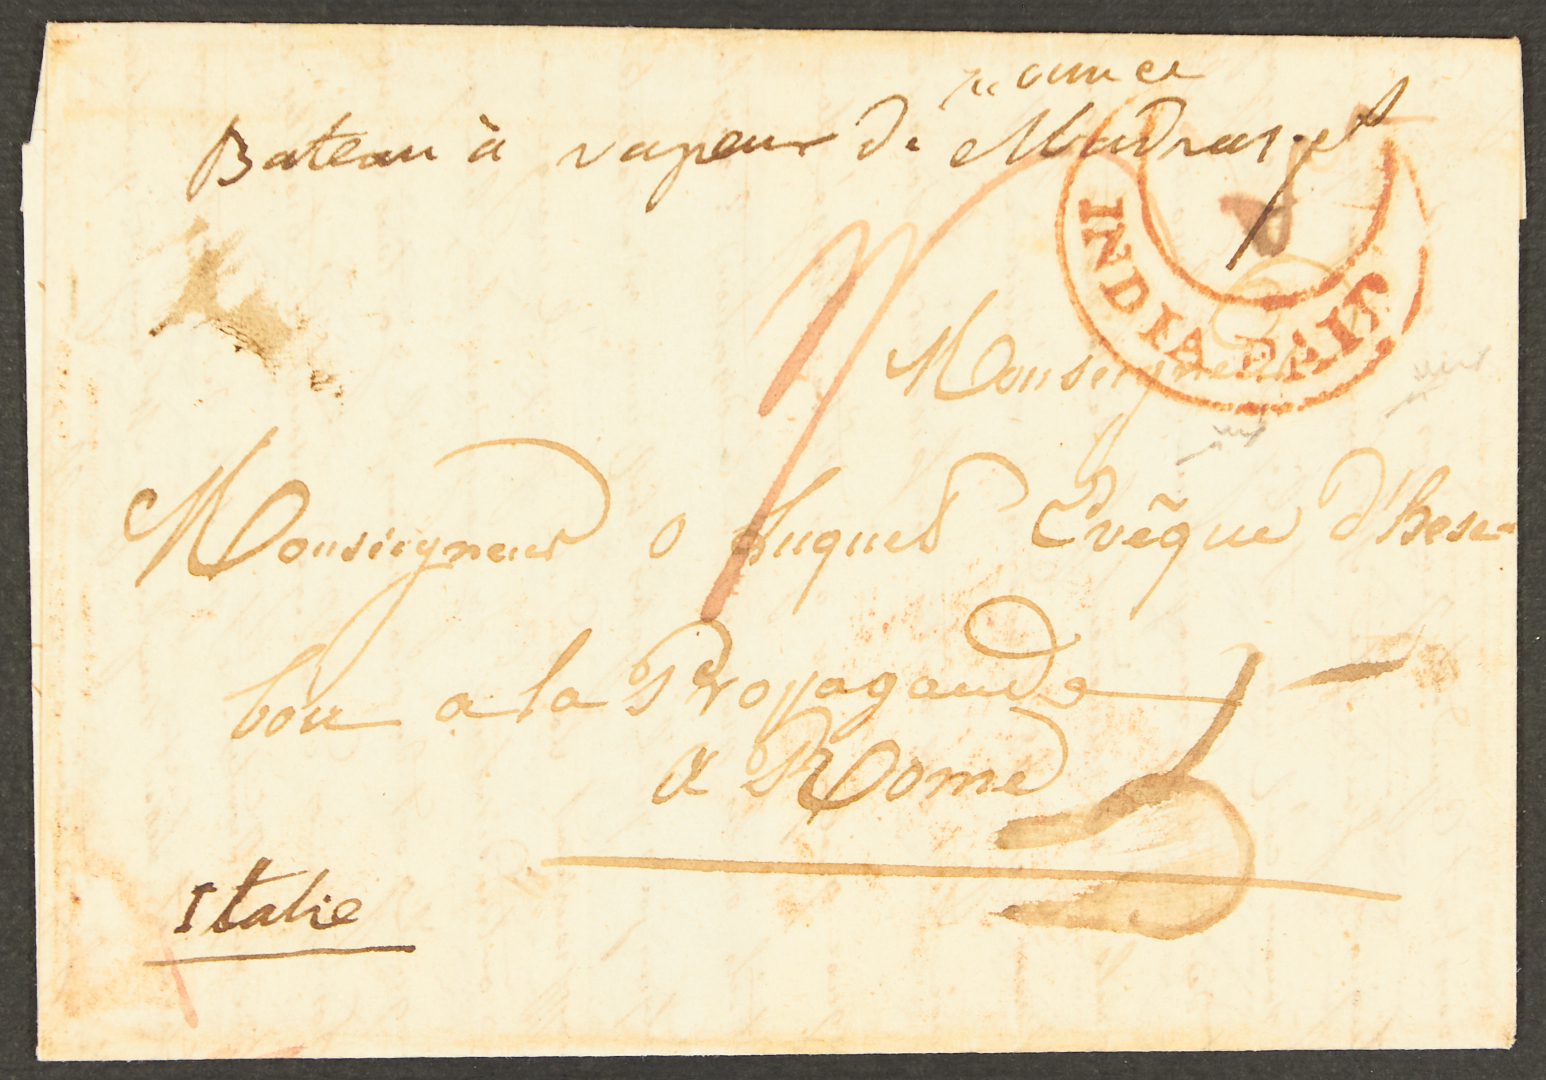 Bateau à vapeur de Madras et
INDIA PAID
Monseigneur
Monseigneur O Hugues Evêque d'Hese-
bon a la Propagande
a Rome
Italie